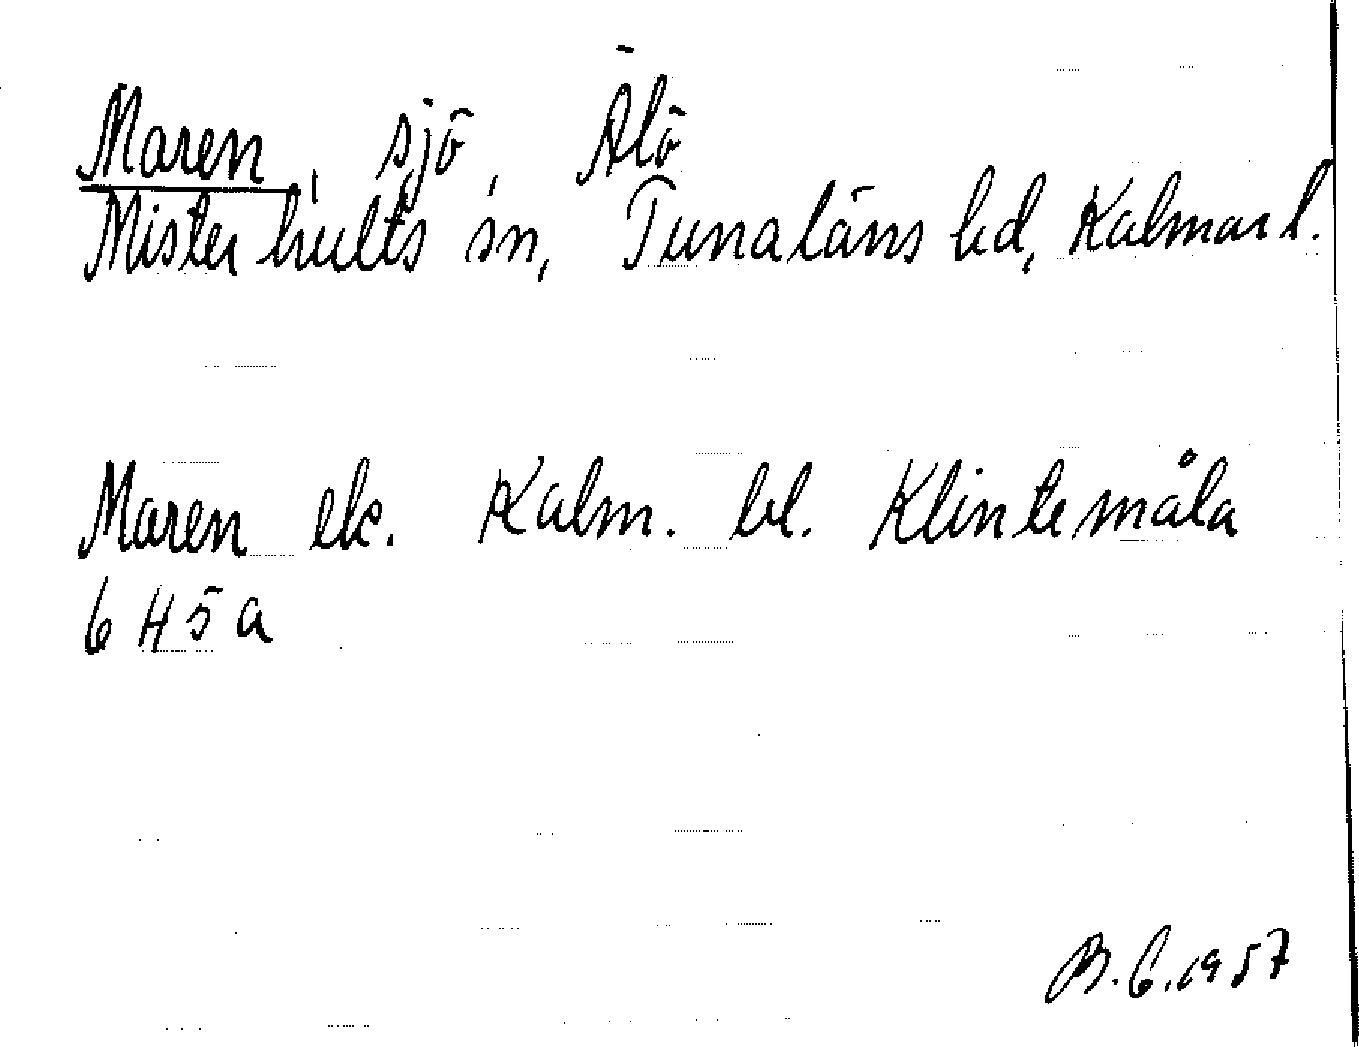 Maren, sjö, Älö
Misterhults sn, Tunaläns hd, Kalmar l.
Maren ek. Kalm. bl. Klintemåla
6 H 5 a
B. G. 1957